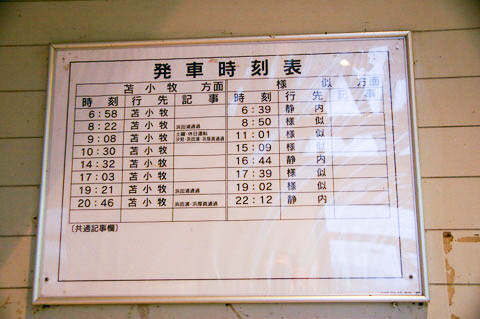 発車時刻表
苫小牧 方面 様似 方面
時刻 行先 記事 時刻 行先 記事
6:58 苫小牧 6:39 静内
8:22 苫小牧 浜田浦通過 8:50 様似
9:08 苫小牧 土曜・休日運転 汐見・浜田浦・浜厚真通過 11:01 様似
10:30 苫小牧 15:09 様似
14:32 苫小牧 16:44 静内
17:03 苫小牧 17:39 様似
19:21 苫小牧 浜田浦通過 19:02 様似
20:46 苫小牧 浜田浦・浜厚真通過 22:12 静内
〔共通記事欄〕